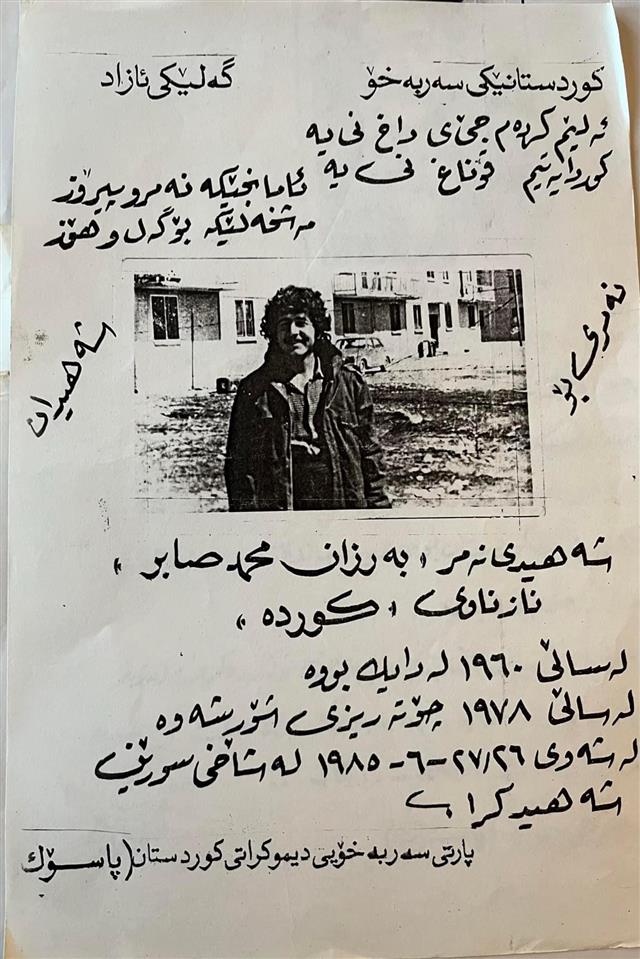 کوردستانێکی سەربەخۆ گەلێکی ئازاد
ئەلێم کردەم جێی داخ نی یە
کوردایەتیم قۆناغ نی یە
ئامانجێکە نەمرو پیرۆز
مەشخەلێکە بۆ گەل و هۆز
نەمری بۆ
شەهیدان
شەهیدی نەمر « بەرزان محمد صابر »
نازناوی « کوردە »
لەساڵێ ١٩٦٠ لەدایك بووە
لەساڵێ ١٩٧٨ چۆتە ریزی شۆرشەوە
لەشەوی ٢٧/٢٦-٦-١٩٨٥ لەشاخی سورێن
شەهید کرا
پارتی سەربەخۆیی دیموکراتی کوردستان (پاسۆك